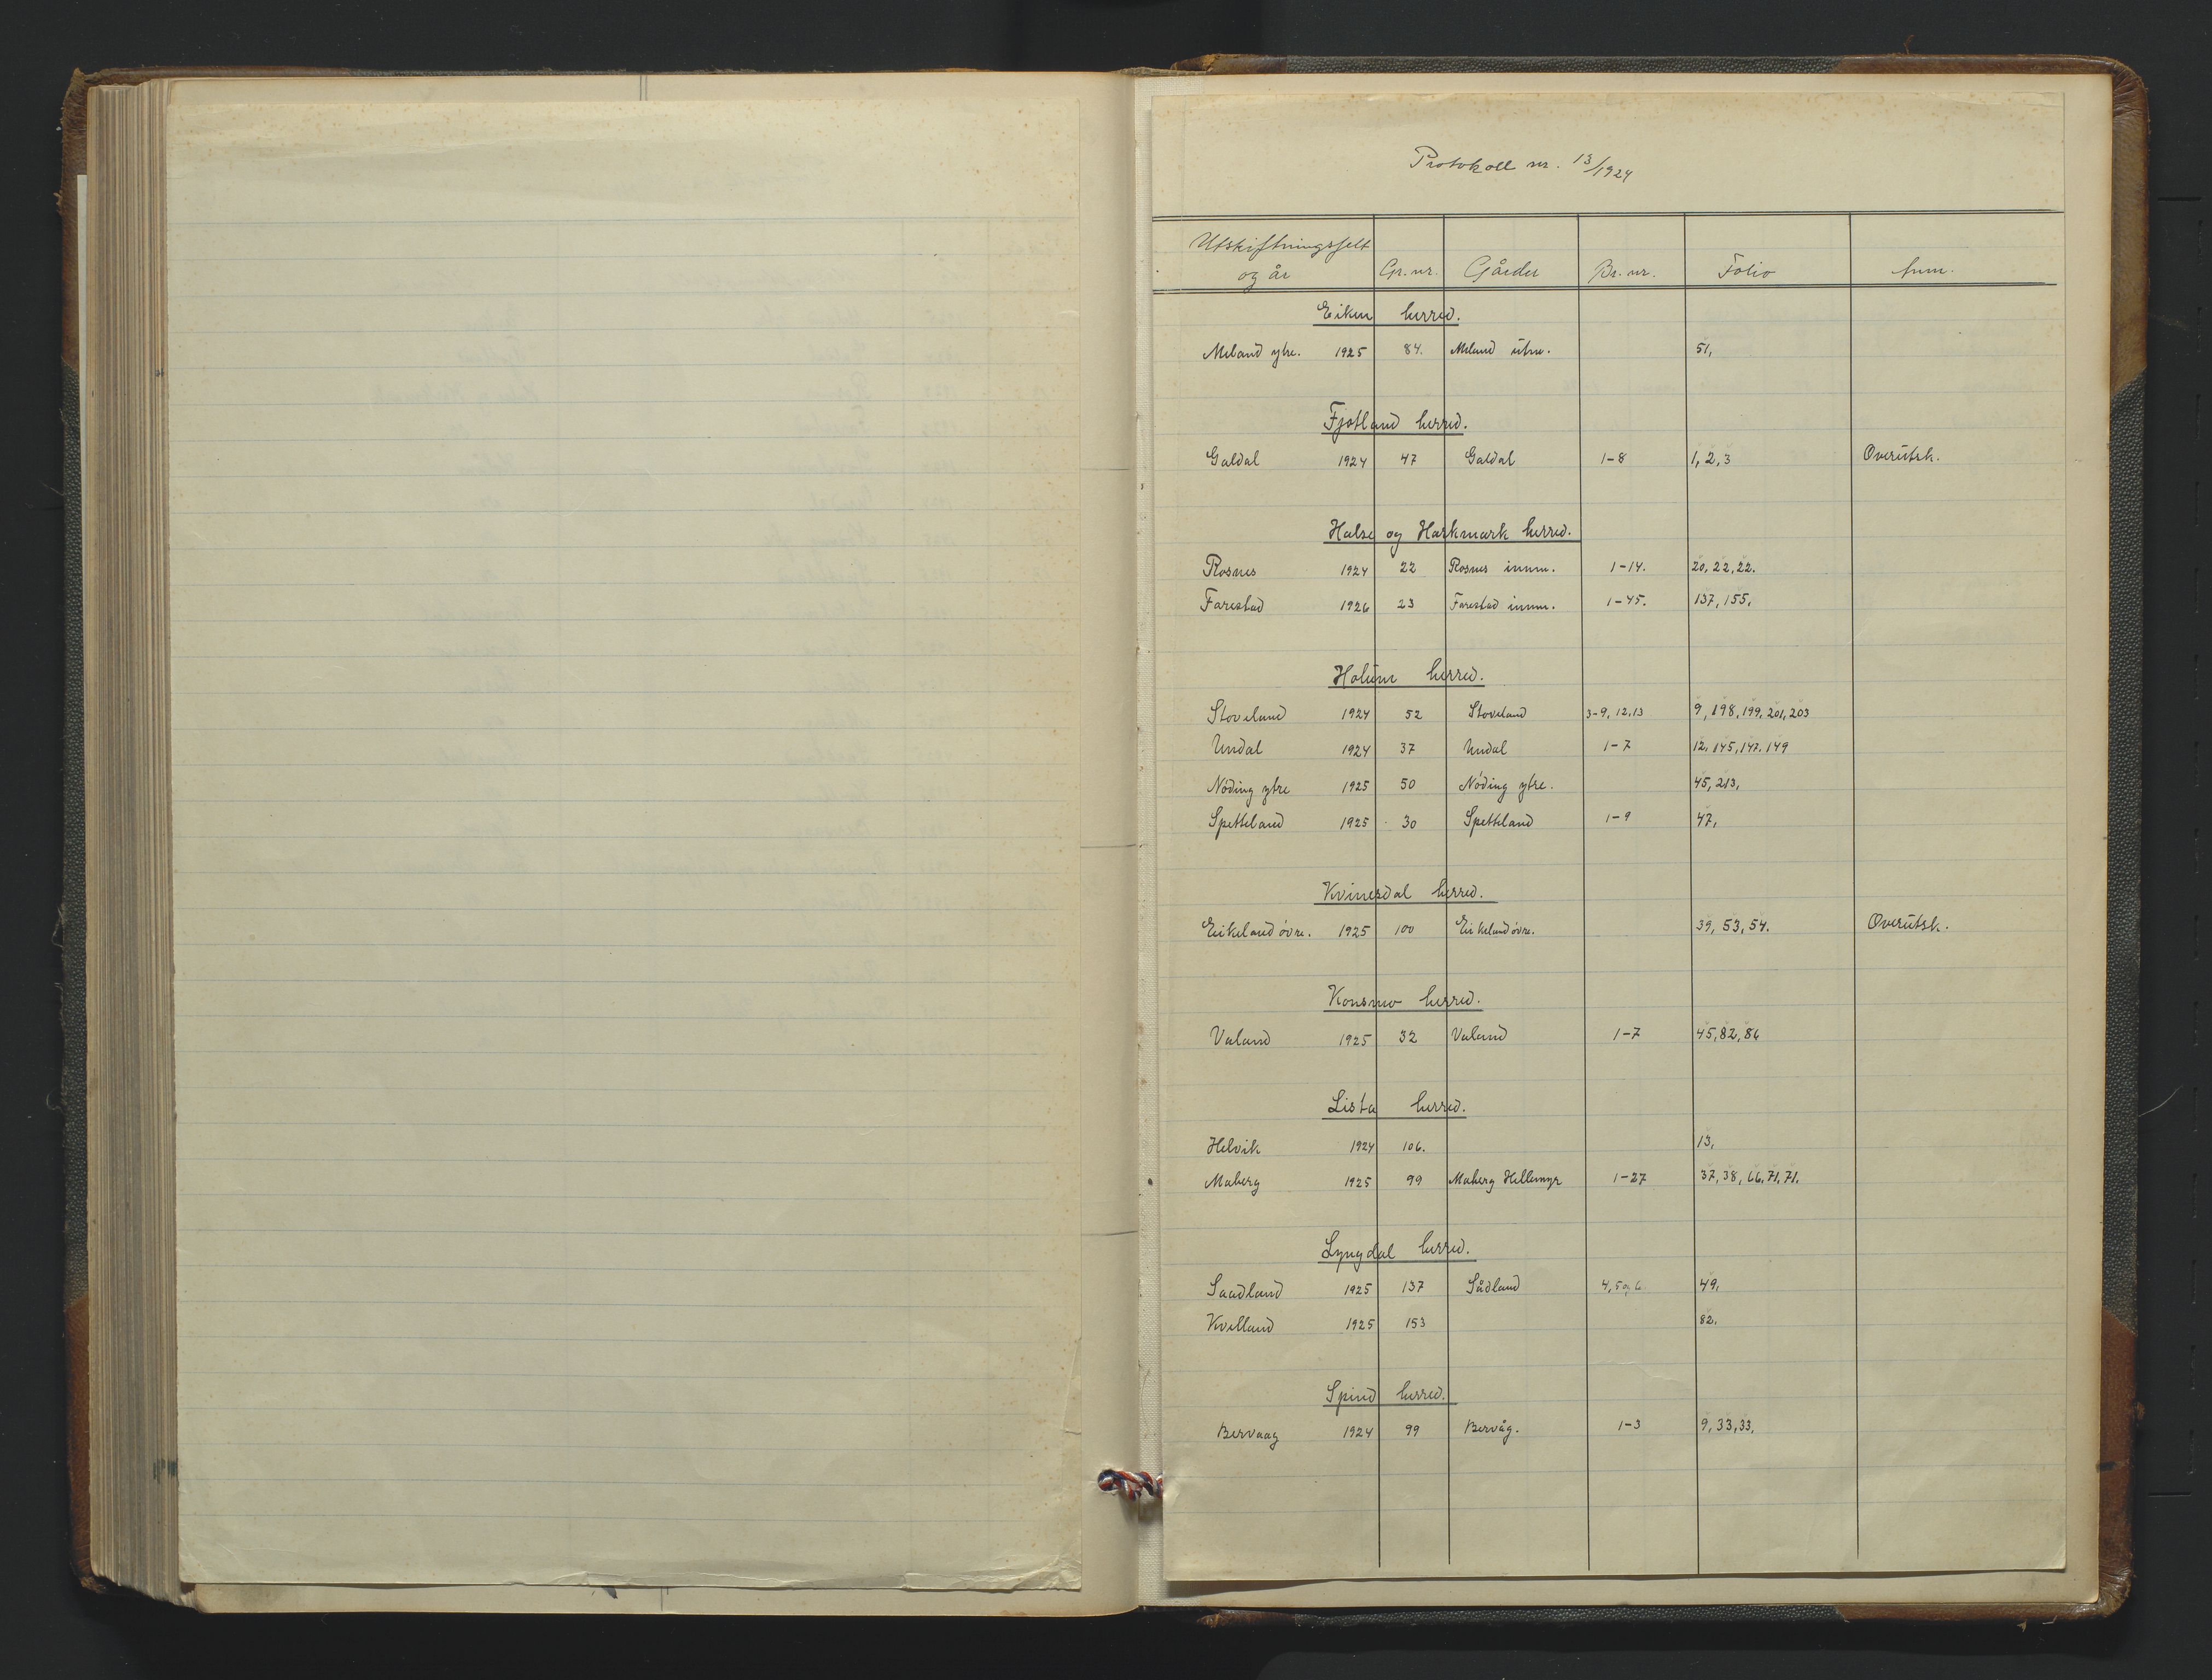 Protokoll nr. 13/1924
Utskiftningsfelt og år Gr.nr. Gårder Br.nr. Folio Anm.
Eiken herred.
Meland ytre. 1925 84. Meland utm. 51,
Fjotland herred.
Galdal 1924 47 Galdal 1-8 1, 2, 3 Overutsk.
Halse og Harkmark herred.
Rosnes 1924 22 Rosnes innm. 1-14. 20, 22, 22.
Farestad 1926 23 Farestad innm. 1-45. 137, 155,
Holum herred.
Stoveland 1924 52 Stoveland 3-9, 12,13 9, 198, 199, 201, 203
Undal 1924 37 Undal 1-7 12, 145, 147, 149
Nøding ytre 1925 50 Nøding ytre. 45, 213,
Spetteland 1925 30 Spetteland 1-9 47,
Kvinesdal herred.
Eikeland övre. 1925 100 Eikeland övre. 39, 53, 54. Overutsk.
Konsmo herred.
Valand 1925 32 Valand 1-7 45, 82, 86
Lista herred.
Helvik 1924 106. 13,
Maberg 1925 99 Maberg Hellemyr 1-27 37, 38, 66, 71, 71.
Lyngdal herred.
Saadland 1925 137 Sådland 4, 5 og 6 49,
Kvelland 1925 153 82.
Spind herred.
Bervaag 1924 99 Bervåg. 1-3 9, 33, 33,